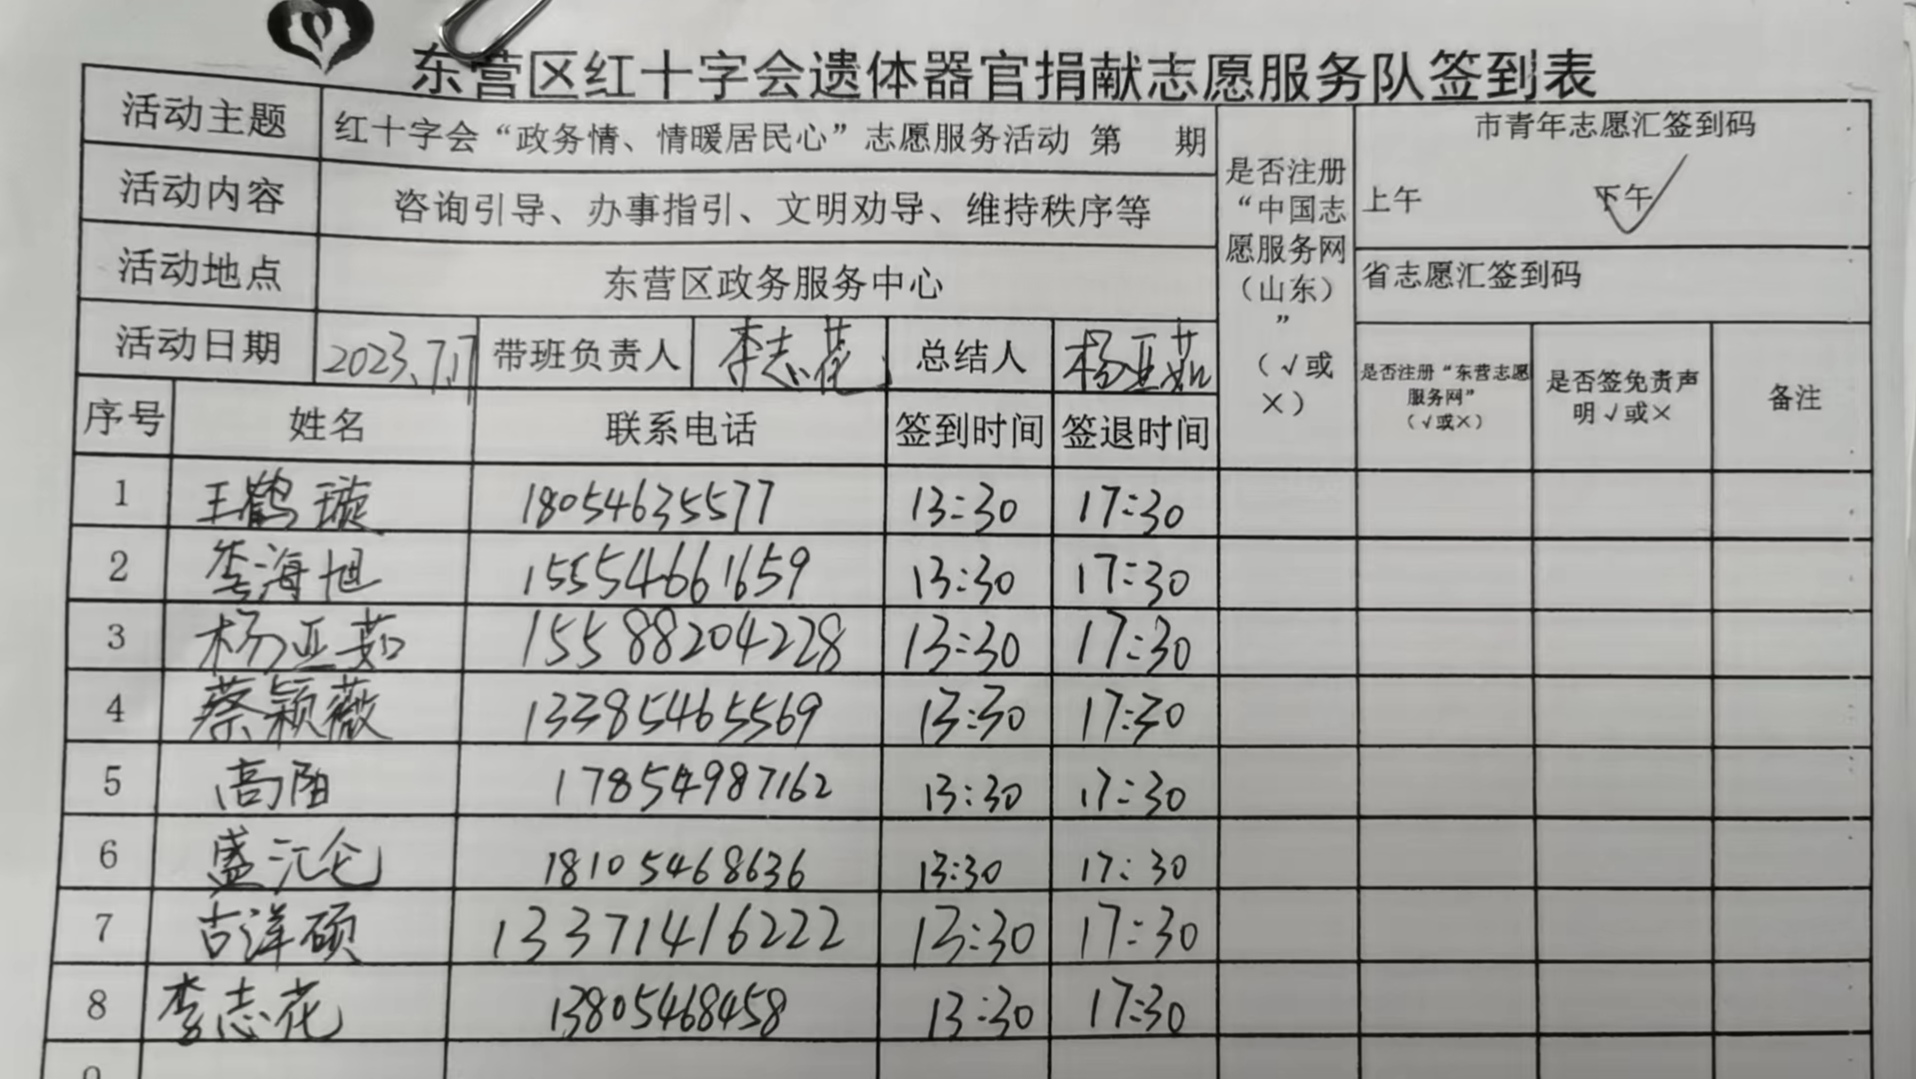 东营区红十字会遗体器官捐献志愿服务队签到表
活动主题 红十字会“政务情、情暖居民心”志愿服务活动 第 期
活动内容 咨询引导、办事指引、文明劝导、维持秩序等
活动地点 东营区政务服务中心
是否注册“中国志愿服务网（山东）”（√或×）
市青年志愿汇签到码
上午 下午 √
省志愿汇签到码
活动日期 2023.7.17 带班负责人 李志花 总结人 杨亚茹
序号 姓名 联系电话 签到时间 签退时间 是否注册“东营志愿服务网”（√或×） 是否签免责声明√或× 备注
1 王鹤璇 18054635577 13:30 17:30
2 李海旭 15554661659 13:30 17:30
3 杨亚茹 15588204228 13:30 17:30
4 蔡颖薇 13385465569 13:30 17:30
5 高阳 17854987162 13:30 17:30
6 盛汇仑 18105468636 13:30 17:30
7 古洋硕 13371416222 13:30 17:30
8 李志花 13805468458 13:30 17:30